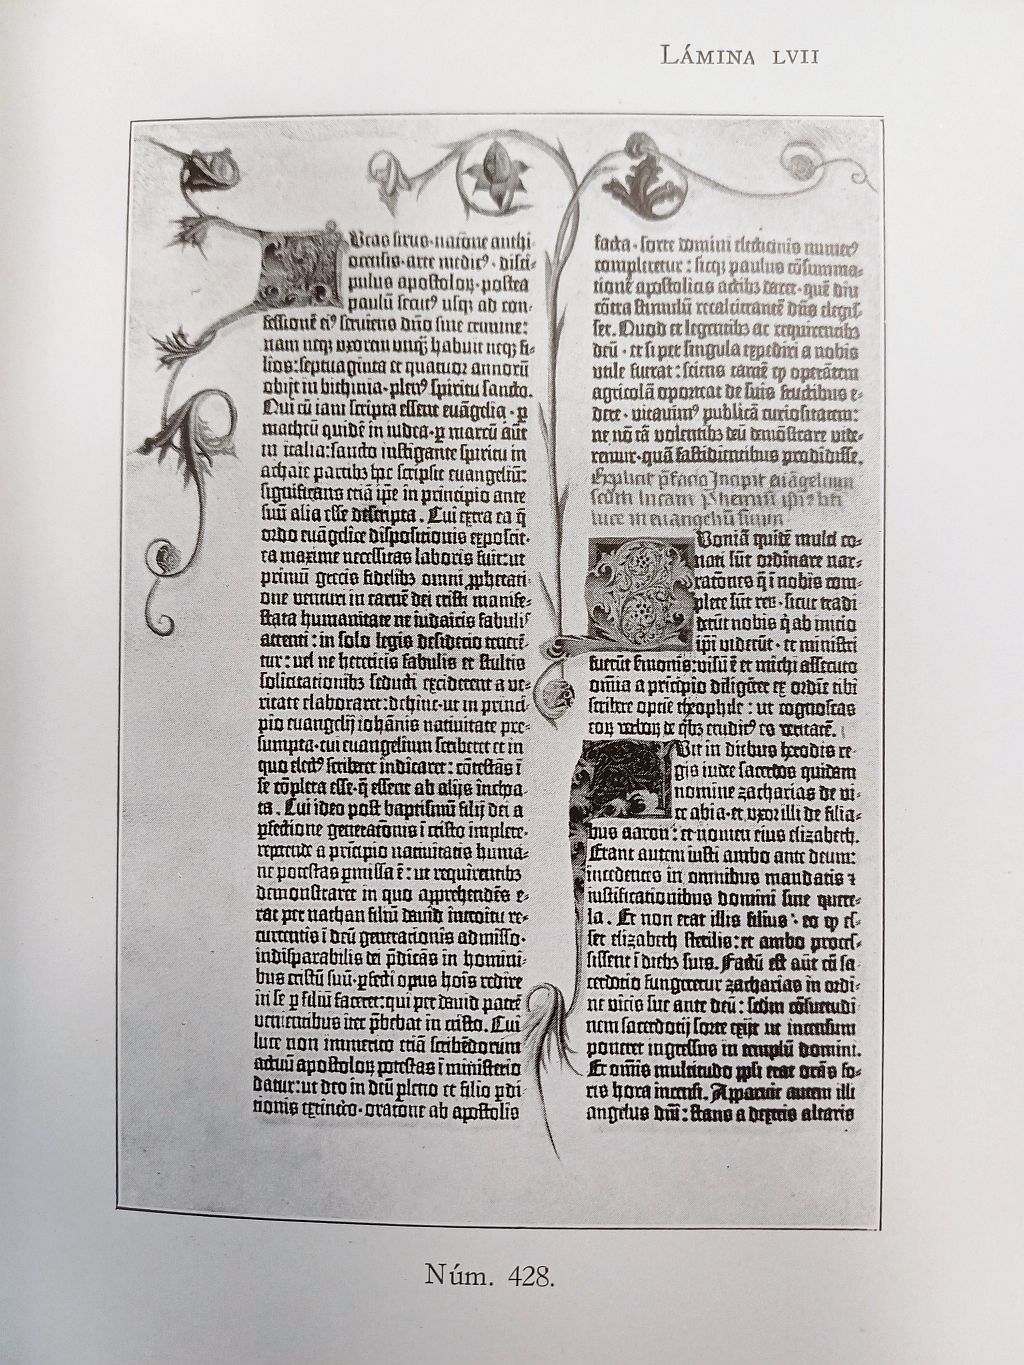 LÁMINA LVII
Vcas sirus·natōne anthi-
ocensis·arte medic⁹·disci-
pulus apostoloꝝ·postea
paulū secut⁹ usqꝫ ad con-
fessionē ei⁹ seruiens dño sine crimine:
nam neqꝫ uxorem unqꝫ habuit neqꝫ fi-
lios: septuaginta et quatuor annorū
obijt in bithinia·plen⁹ spiritu sancto.
Qui cū iam scripta essent euāgelia·ꝑ
matheū quidē in iudea·ꝑ marcū aūt
in italia: sancto instigante spiritu in
achaie partibꝫ hoc scripsit euangeliū:
significans etiā ip̄e in principio ante
suū alia esse descripta. Cui extra ea q̄
ordo euāgelice dispositionis exposcit·
ea maxime necessitas laboris fuit: ut
primū grecis fidelibꝫ omni ꝓphetati-
one venturi in carnē dei cristi manife-
stata humanitate ne iudaicis fabulis
attenti: in solo legis desiderio tenerē-
tur: uel ne hereticis fabulis et stultis
solicitationibꝫ seducti exciderent a ve-
ritate elaboraret: dehinc·ut in princi-
pio euangelij iohānis natiuitate pre-
sumpta·cui euangelium scriberet et in
quo elect⁹ scriberet indicaret: cōtestās ī
se cōpleta esse·q̄ essent ab alijs inchoa-
ta. Cui ideo post baptismū filij dei a
ꝑfectione generatōnis ī cristo implete·
repetende a prīcipio natiuitatis huma-
ne potestas ꝑmissa ē: ut requirentibꝫ
demonstraret in quo apprehendēs e-
rat per nathan filiū dauid introitu re-
currentis ī deū generationis admisso·
indisparabilis dei p̄dicās in homini-
bus cristū suū·ꝑfecti opus hoīs redire
in se ꝑ filiū faceret: qui per dauid patrē
venientibus iter p̄bebat in cristo. Cui
luce non immerito etiā scribēdorum
actuū apostoloꝝ potestas ī ministerio
datur: ut deo in deū pleno et filio ꝑdi-
tionis extincto·oratone ab apostolis
facta·sorte domini electionis numer⁹
completetur: sicqꝫ paulus cōsumma-
tionē apostolicis actibꝫ daret·quē diu
cōtra stimulū recalcitrantē dn̄s elegis-
set. Quod et legentibꝫ ac requirentibꝫ
deū·et si per singula expediri a nobis
utile fuerat: sciens tamē ꝙ operātem
agricolā oporteat de suis fructibus e-
dere·vitauim⁹ publicā curiositatem:
ne nō tā volentibꝫ deū demōstrare vide-
remur·quā fastidientibus prodidisse.
Explicit p̄facio Incipit euāgelium
scd̄m lucam Prhemiū ip̄i⁹ bti
luce in euangeliū suum
Quoniā quidē multi co-
nati sūt ordinare nar-
ratōnes q̄ ī nobis com-
plete sūt reꝝ·sicut tradi-
derūt nobis q̄ ab inicio
ip̄i viderūt·et ministri
fuerūt sermonis: visū ē et michi assecuto
om̄ia a prīcipio diligēter ex ordine tibi
scribere optīe theophile: ut cognoscas
eoꝝ verboꝝ de qͥbꝫ erudit⁹ es veritatē.
Fuit in diebus herodis re-
gis iudee sacerdos quidam
nomine zacharias de vi-
ce abia·et uxor illi de filia-
bus aaron: et nomen eius elizabeth.
Erant autem iusti ambo ante deum:
incedentes in omnibus mandatis ⁊
iustificationibus domini sine quere-
la. Et non erat illis filius·eo ꝙ es-
set elizabeth sterilis: et ambo proces-
sissent ī diebꝫ suis. Factū est aūt cū sa-
cerdotio fungeretur zacharias in ordi-
ne vicis sue ante deū: scd̄m cōsuetudi-
nem sacerdotij sorte exijt ut incensum
poneret ingressus in templū domini.
Et om̄is multitudo ppl̄i erat orās fo-
ris hora incensi. Apparuit autem illi
angelus dn̄i: stans a dextris altaris
Núm. 428.